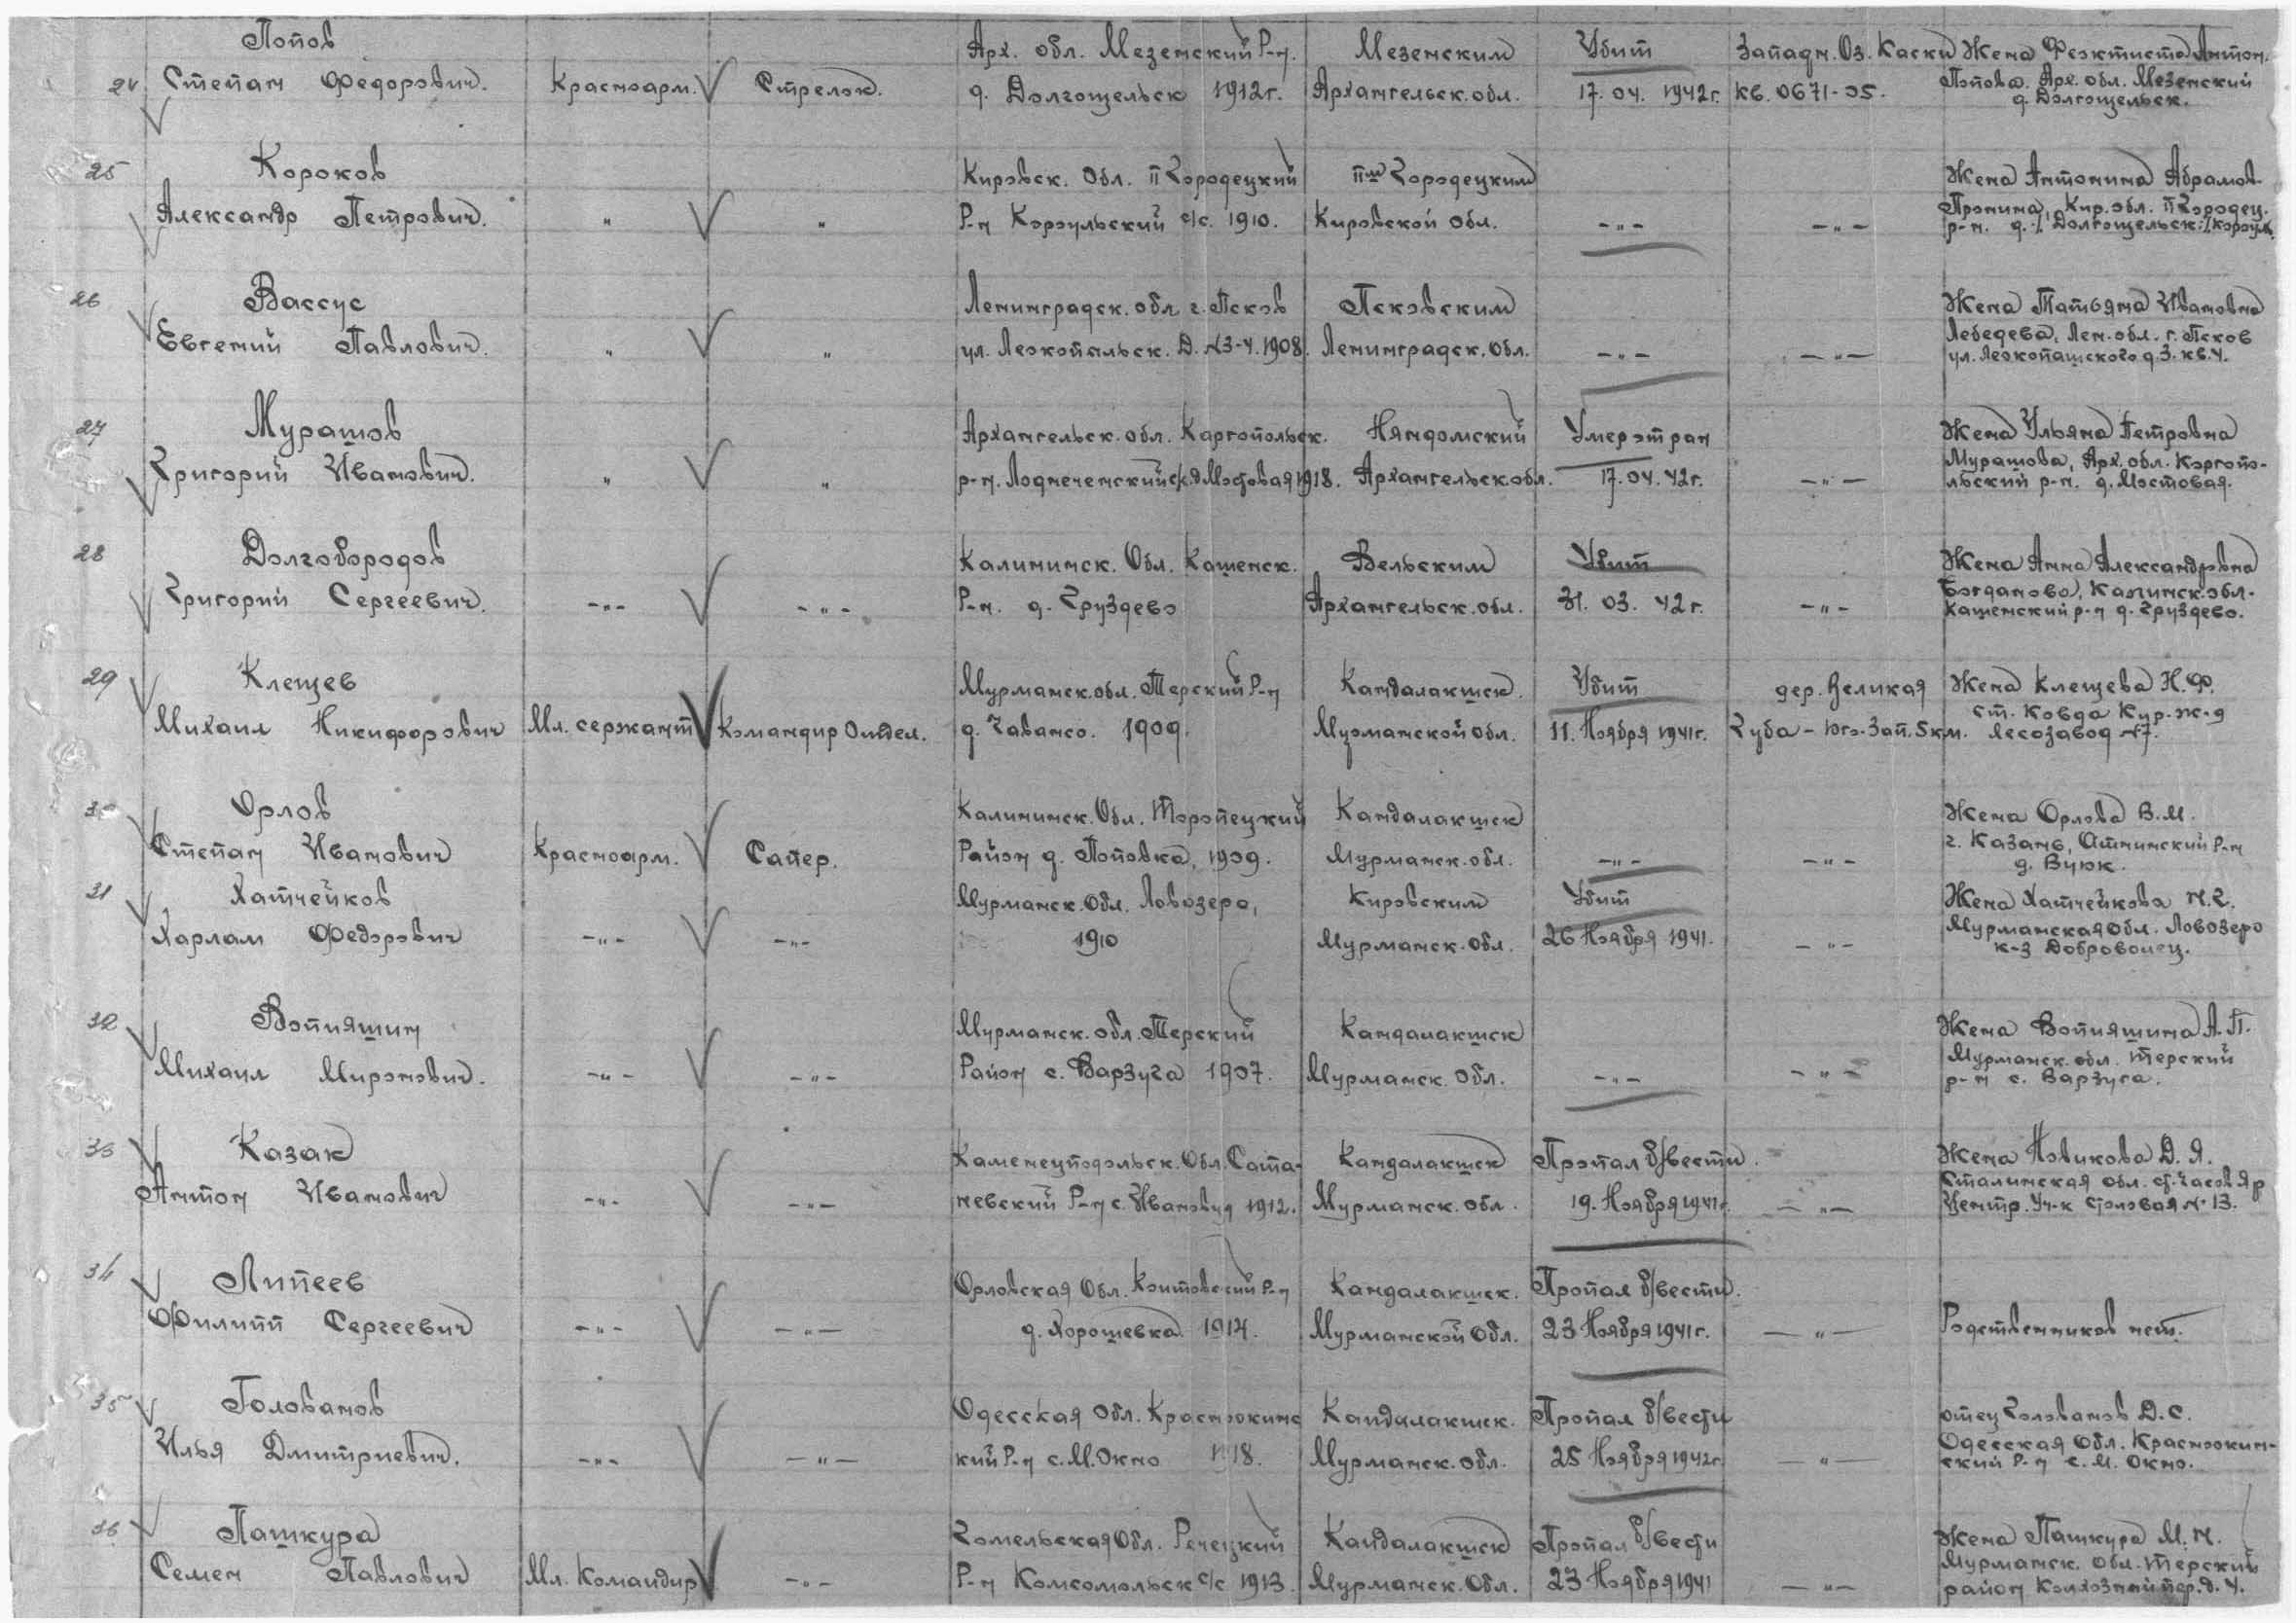 Попов Арх. обл. Мезенский Р-н. Мезенским Убит Западн. Оз. Каски Жена Феоктиста Антон.
24 Степан Федорович. Красноарм. Стрелок. д. Долгощельск 1912г. Архангельск. обл. 17. 04. 1942г. кв. 0671-05. Попова. Арх. обл. Мезенский
д. Долгощельск.
25 Короков Кировск. Обл. П Городецкий Пм Городецким Жена Антонина Абрамов.
Александр Петрович. " " Р-н Корзульский с/с. 1910. Кировской обл. -"- -"- Пронина, Кир. обл. П Городец.
р-н. д. ./. Долгощельск ./.
26 Вассус Ленинградск. обл. г. Псков Псковским Жена Татьяна Ивановна
Евгений Павлович. " " ул. Леокопыльск. Д. №3-4. 1908. Ленинградск. Обл. -"- -"- Лебедева, Лен. обл. г. Псков
ул. Леокопашского д. 3. кв. 4.
27 Мурашов Архангельск. обл. Каргопольск. Няндомский Умер от ран Жена Ульяна Петровна
Григорий Иванович. " " р-н. Лодмеченский с/с. д. Мостовая 1918. Архангельск. обл. 17. 04. 42г. -"- Мурашова, Арх. обл. Каргопо-
льский р-н. д. Мостовая.
28 Долгобородов Калининск. Обл. Кашенск. Вельским Убит Жена Анна Александровна
Григорий Сергеевич. -"- -"- Р-н. д. Груздево Архангельск. обл. 31. 03. 42г. -"- Богданова, Калининск. обл.
Кашенский р-н д. Груздево.
29 Клещев Мурманск. обл. Терский Р-н Кандалакшск. Убит дер. Великая Жена Клещева Н. Ф.
Михаил Никифорович Мл. сержант Командир Отдел. д. Чаваньо. 1909. Мурманской обл. 11. Ноября 1941г. Губа - Юго-Зап. 5 км. ст. Ковда Кир. ж-д
Лесозавод №7.
30 Орлов Калининск. Обл. Торопецкий Кандалакшск Жена Орлова В. М.
Степан Иванович Красноарм. Сапер. Район д. Поповка, 1909. Мурманск. обл. -"- -"- г. Казань, Атнинский Р-н
д. Вуюк.
31 Хатчейков Мурманск. Обл. Ловозеро, Кировским Убит Жена Хатчейкова
Харлам Федорович -"- -"- 1910 Мурманск. обл. 26 Ноября 1941. -"- Мурманская обл. Ловозеро
к-з Доброволец.
32 Вопияшин Мурманск. обл. Терский Кандалакшск Жена Вопияшина А. П.
Михаил Миронович. -"- -"- Район с. Варзуга 1907. Мурманск. Обл. -"- -"- Мурманск. обл. Терский
р-н с. Варзуга.
33 Казак Каменецподольск. Обл. Сата- Кандалакшск Пропал б/вести. Жена Новикова Д. Я.
Антон Иванович -"- -"- невский Р-н с. Ивановцы 1912. Мурманск. обл. 19. Ноября 1941г. -"- Сталинская обл. ст. Часов Яр
Центр. Уч-к Столовая № 13.
34 Липеев Орловская Обл. Р-н Кандалакшск. Пропал б/вести.
Филипп Сергеевич -"- -"- д. Хорошевка. 1914. Мурманской Обл. 23 Ноября 1941г. -"- Родственников нет.
35 Голованов Одесская обл. Краснооκинс Кандалакшск. Пропал б/вести отец Голованов Д. С.
Илья Дмитриевич. -"- -"- кий Р-н с. М. Окно 1918. Мурманск. обл. 25 Ноября 1942г. -"- Одесская Обл. Красноокин-
ский Р-н с. М. Окно.
36 Пашкура Гомельская Обл. Речецкий Кандалакшск Пропал б/вести Жена Пашкура М. Н.
Семен Павлович Мл. Командир -"- Р-н Комсомольск с/с 1913. Мурманск. Обл. 23 Ноября 1941 -"- Мурманск. Обл. Терский
район Колхозный пер. д. 4.